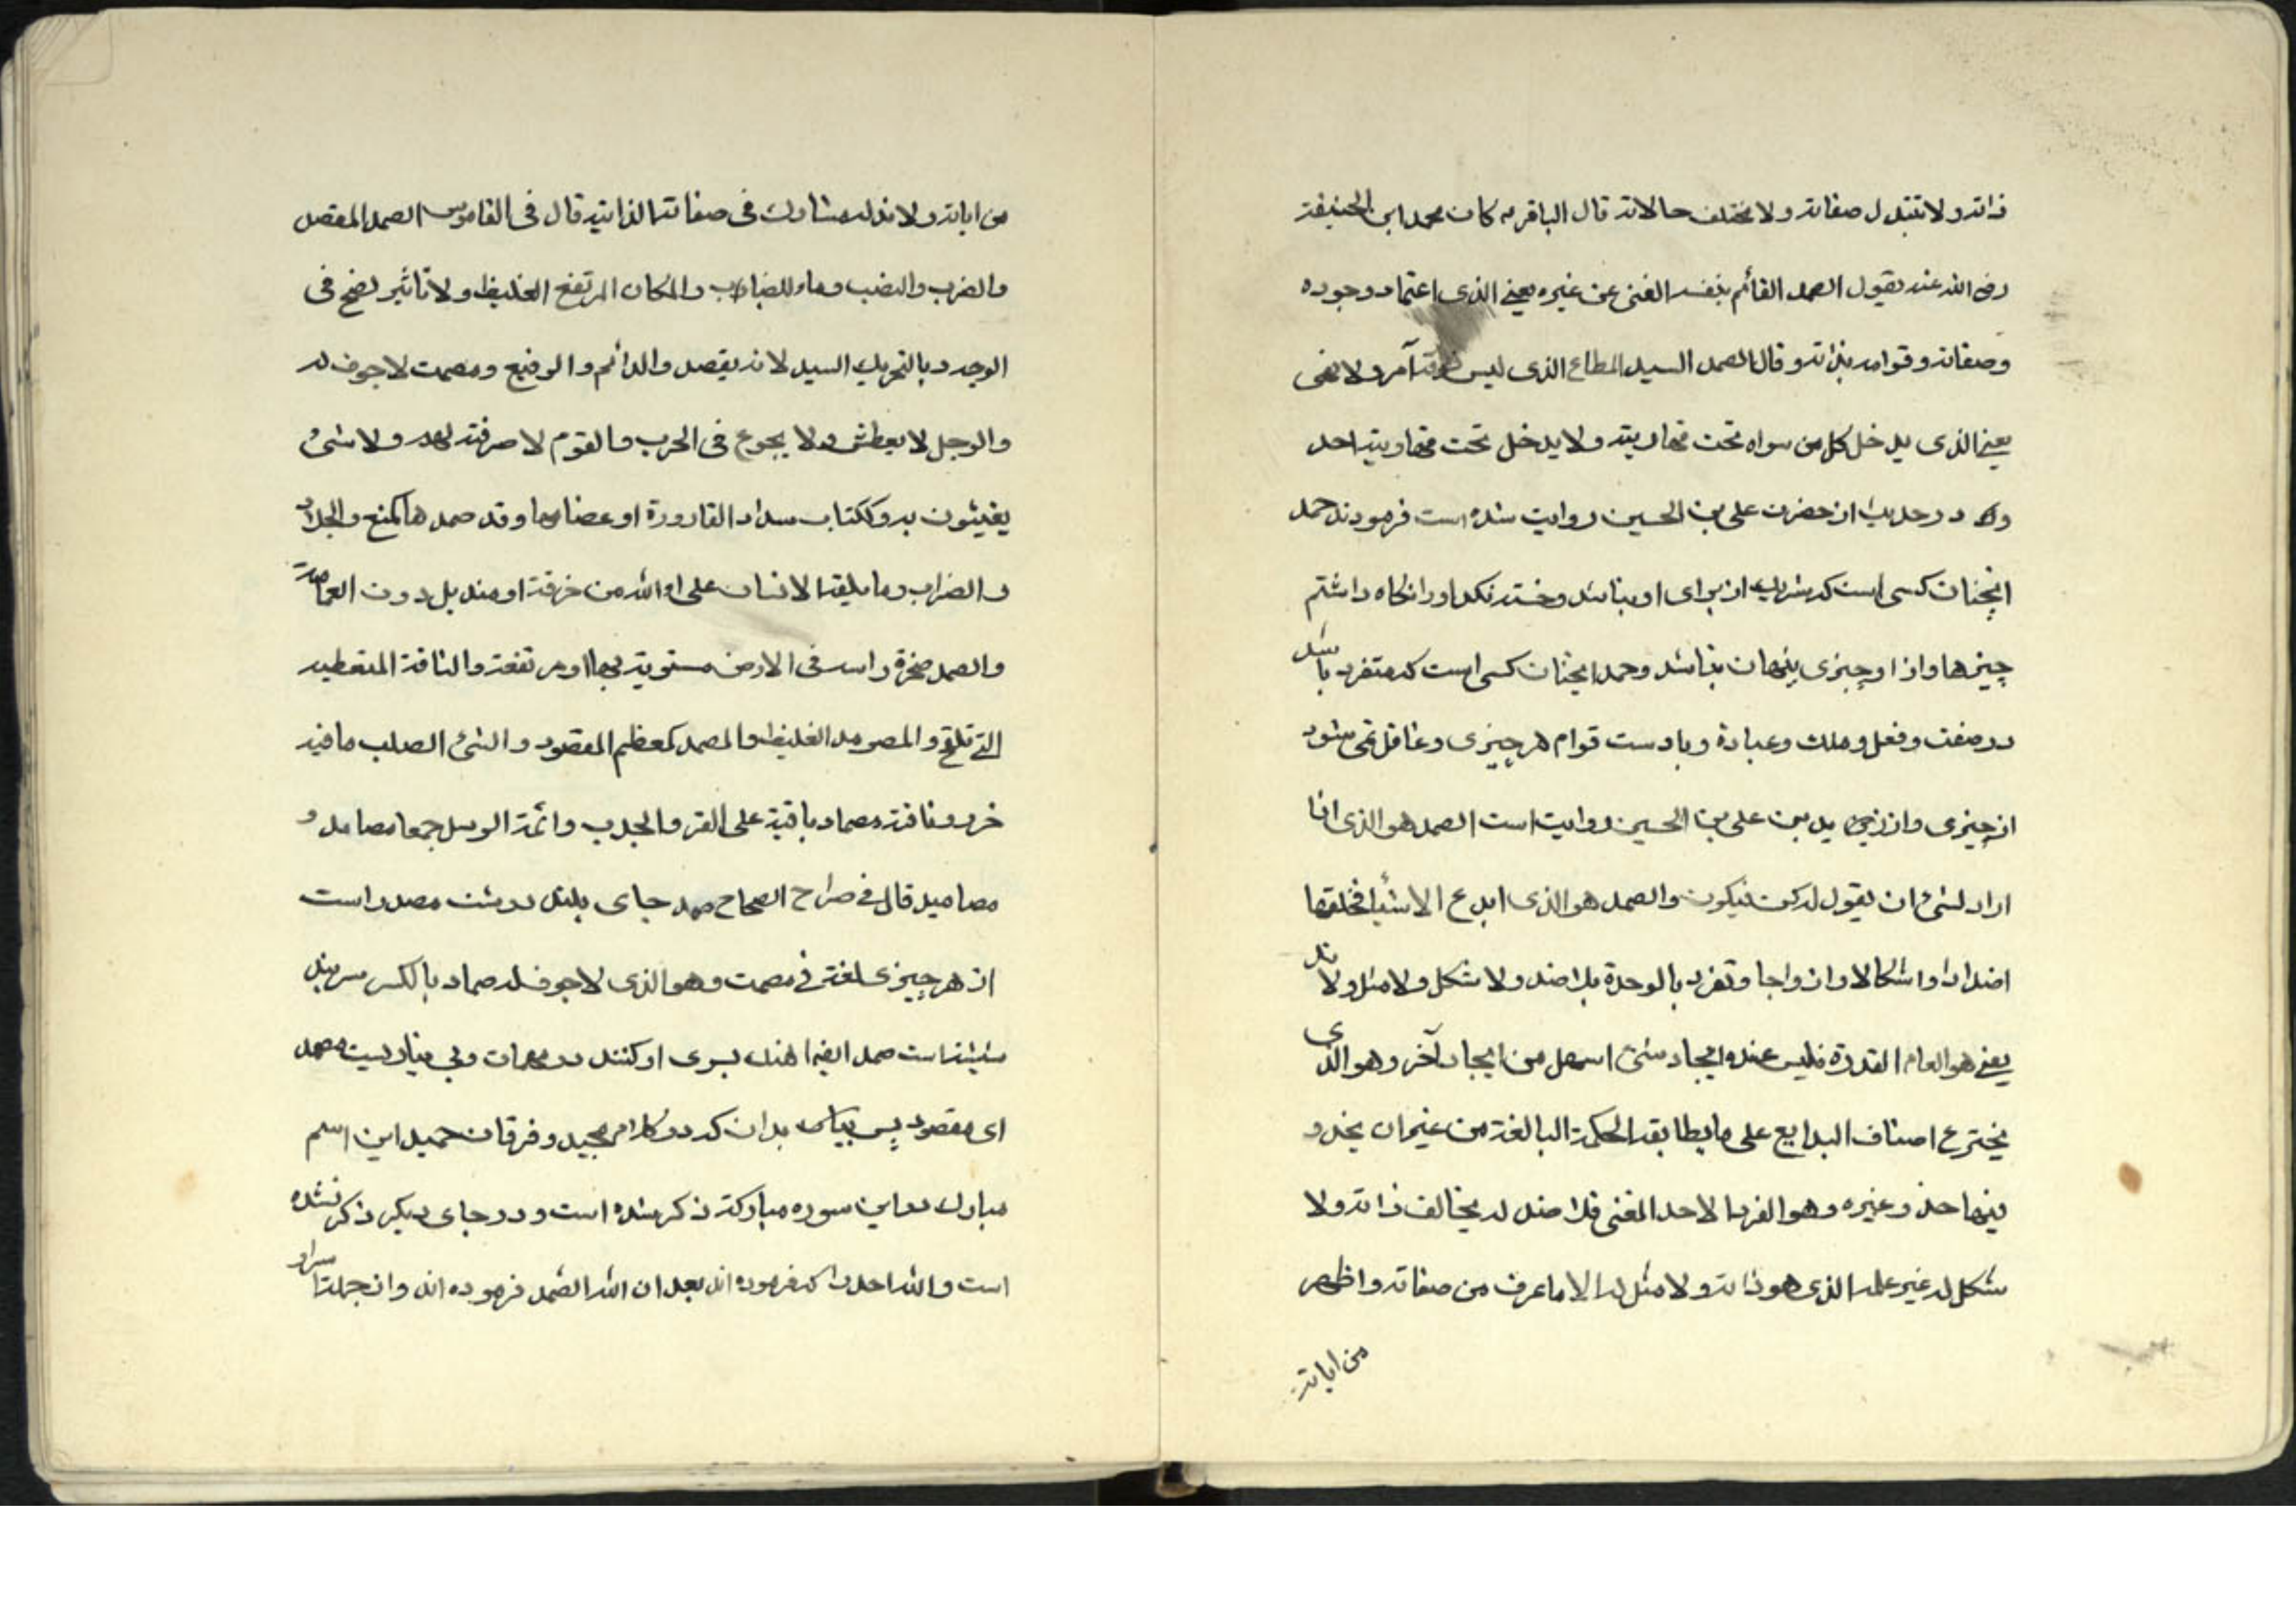 ذاته ولا تتبدل صفاته ولا یختلف حالاته قال الباقر ع کان محمد ابن الحنیفة
رضی الله عنه یقول الصمد القائم بنفسه الغنی عن غیره یعنی الذی اعتماد وجوده
وصفاته وقوامه بذاته وقال الصمد السید المطاع الذی لیس فوقه آمر ولا نهی
یعنی الذی یدخل کل من سواه تحت قهاریته ولا یدخل تحت قهاریته احد
و در حدیث از حضرت علی بن الحسین روایت شده است فرمودند صمد
انچنان کسی است که شریک از برای او نباشد وخسته نکند او را نکاه داشتم
چیزها واز او چیزی پنهان نباشد وصمد انچنان کسی است که متفرد باشد
در صفت وفعل وملک وعبادة وباوست قوام هر چیزی وغافل نمی شود
از چیزی واز زید بن علی بن الحسین روایت است الصمد هو الذی اذا
اراد لشیء ان یقول له کن فیکون والصمد هو الذی ابدع الاشیاء فخلقها
اضدادا واشکالا وازواجا وتفرد بالوحدة بلا ضد ولا شکل ولا مثل ولا ند
یعنی هو العام القدرة فلیس عنده ایجاد شیء اسهل من ایجاد آخر وهو الذی
یخترع اصناف البدایع علی ما یطابقه الحکمة البالغة من غیر ان یحذو
فیها حذو غیره وهو الفرد الاحد المغنی فلا ضد له یخالف ذاته ولا
شکل له غیر علمه الذی هو ذاته ولا مثل له الا ما عرف من صفاته واظهر
من ایاته
من ایاته ولا ند له مشارک فی صفاته الذاتیة قال فی القاموس الصمد المقصد
والضرب والنصب وماء للضباب والمکان المرتفع الغلیظ ولا تاثیر لضح فی
الوجه وبالتحریک السید لانه یقصد والدائم والرفیع ومصمت لا جوف له
والرجل لا یعطش ولا یجوع فی الحرب والقوم لا حرفة لهم ولا شیء
یعیشون به وککتاب سداد القارورة او عفاصها وقد صمدها کمنع والجلاد
والضراب وما یلفه الانسان علی راسه من خرقة او مندیل دون العمامة
والصمد صخرة راسیة فی الارض مستویة بها او مرتفعة والناقة المتعطیه
التی تلقح والمصومد الغلیظ والمصمد کمعظم المقصود والشیء الصلب ما فیه
خور وناقة مصماد باقیة علی القر والجدب دائمة الرسل جمعها مصامد و
مصامید قال فی صراح الصحاح صمد جای بلند درشت مصدر است
از هر چیزی لغته فی مصمت وهو الذی لا جوف له صماد بالکسر سربند
شیشه است صمد ایضا اهنک بسوی او کنند در مهمات وبی نیاز بیت مصمد
ای مقصود پس بدان که در کلام مجید وفرقان حمید این اسم
مبارک در این سوره مبارکة ذکر شده است ودر جای دیکر ذکر نشده
است والله احد را که فرموده اند بعد از ان الله الصمد فرموده اند واز جمله اسرار